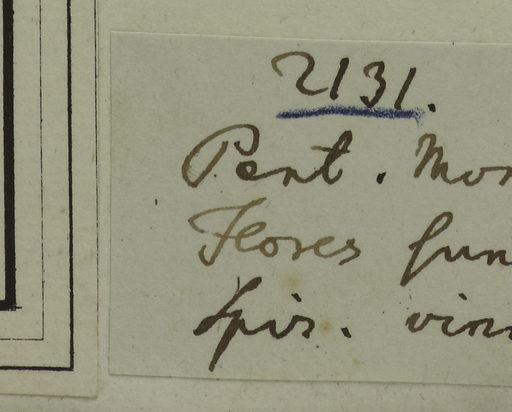 2131.
Pent. Mon
Flores sun
Spir. vin